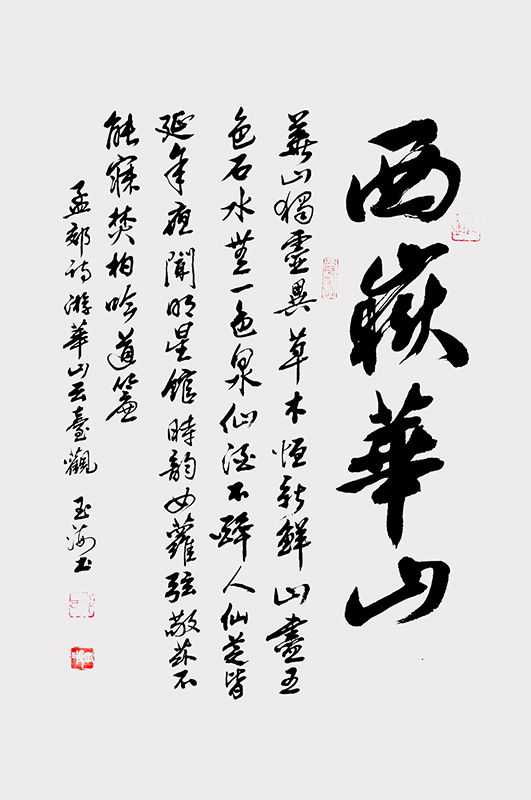 西嶽華山
華山獨靈異草木恒新鮮山盡五
色石水無一色泉仙酒不醉人仙芝皆
延年夜聞明星館時韵女蘿弦敬茲不
能寐焚柏吟道篇
孟郊詩游華山云臺觀 玉海书